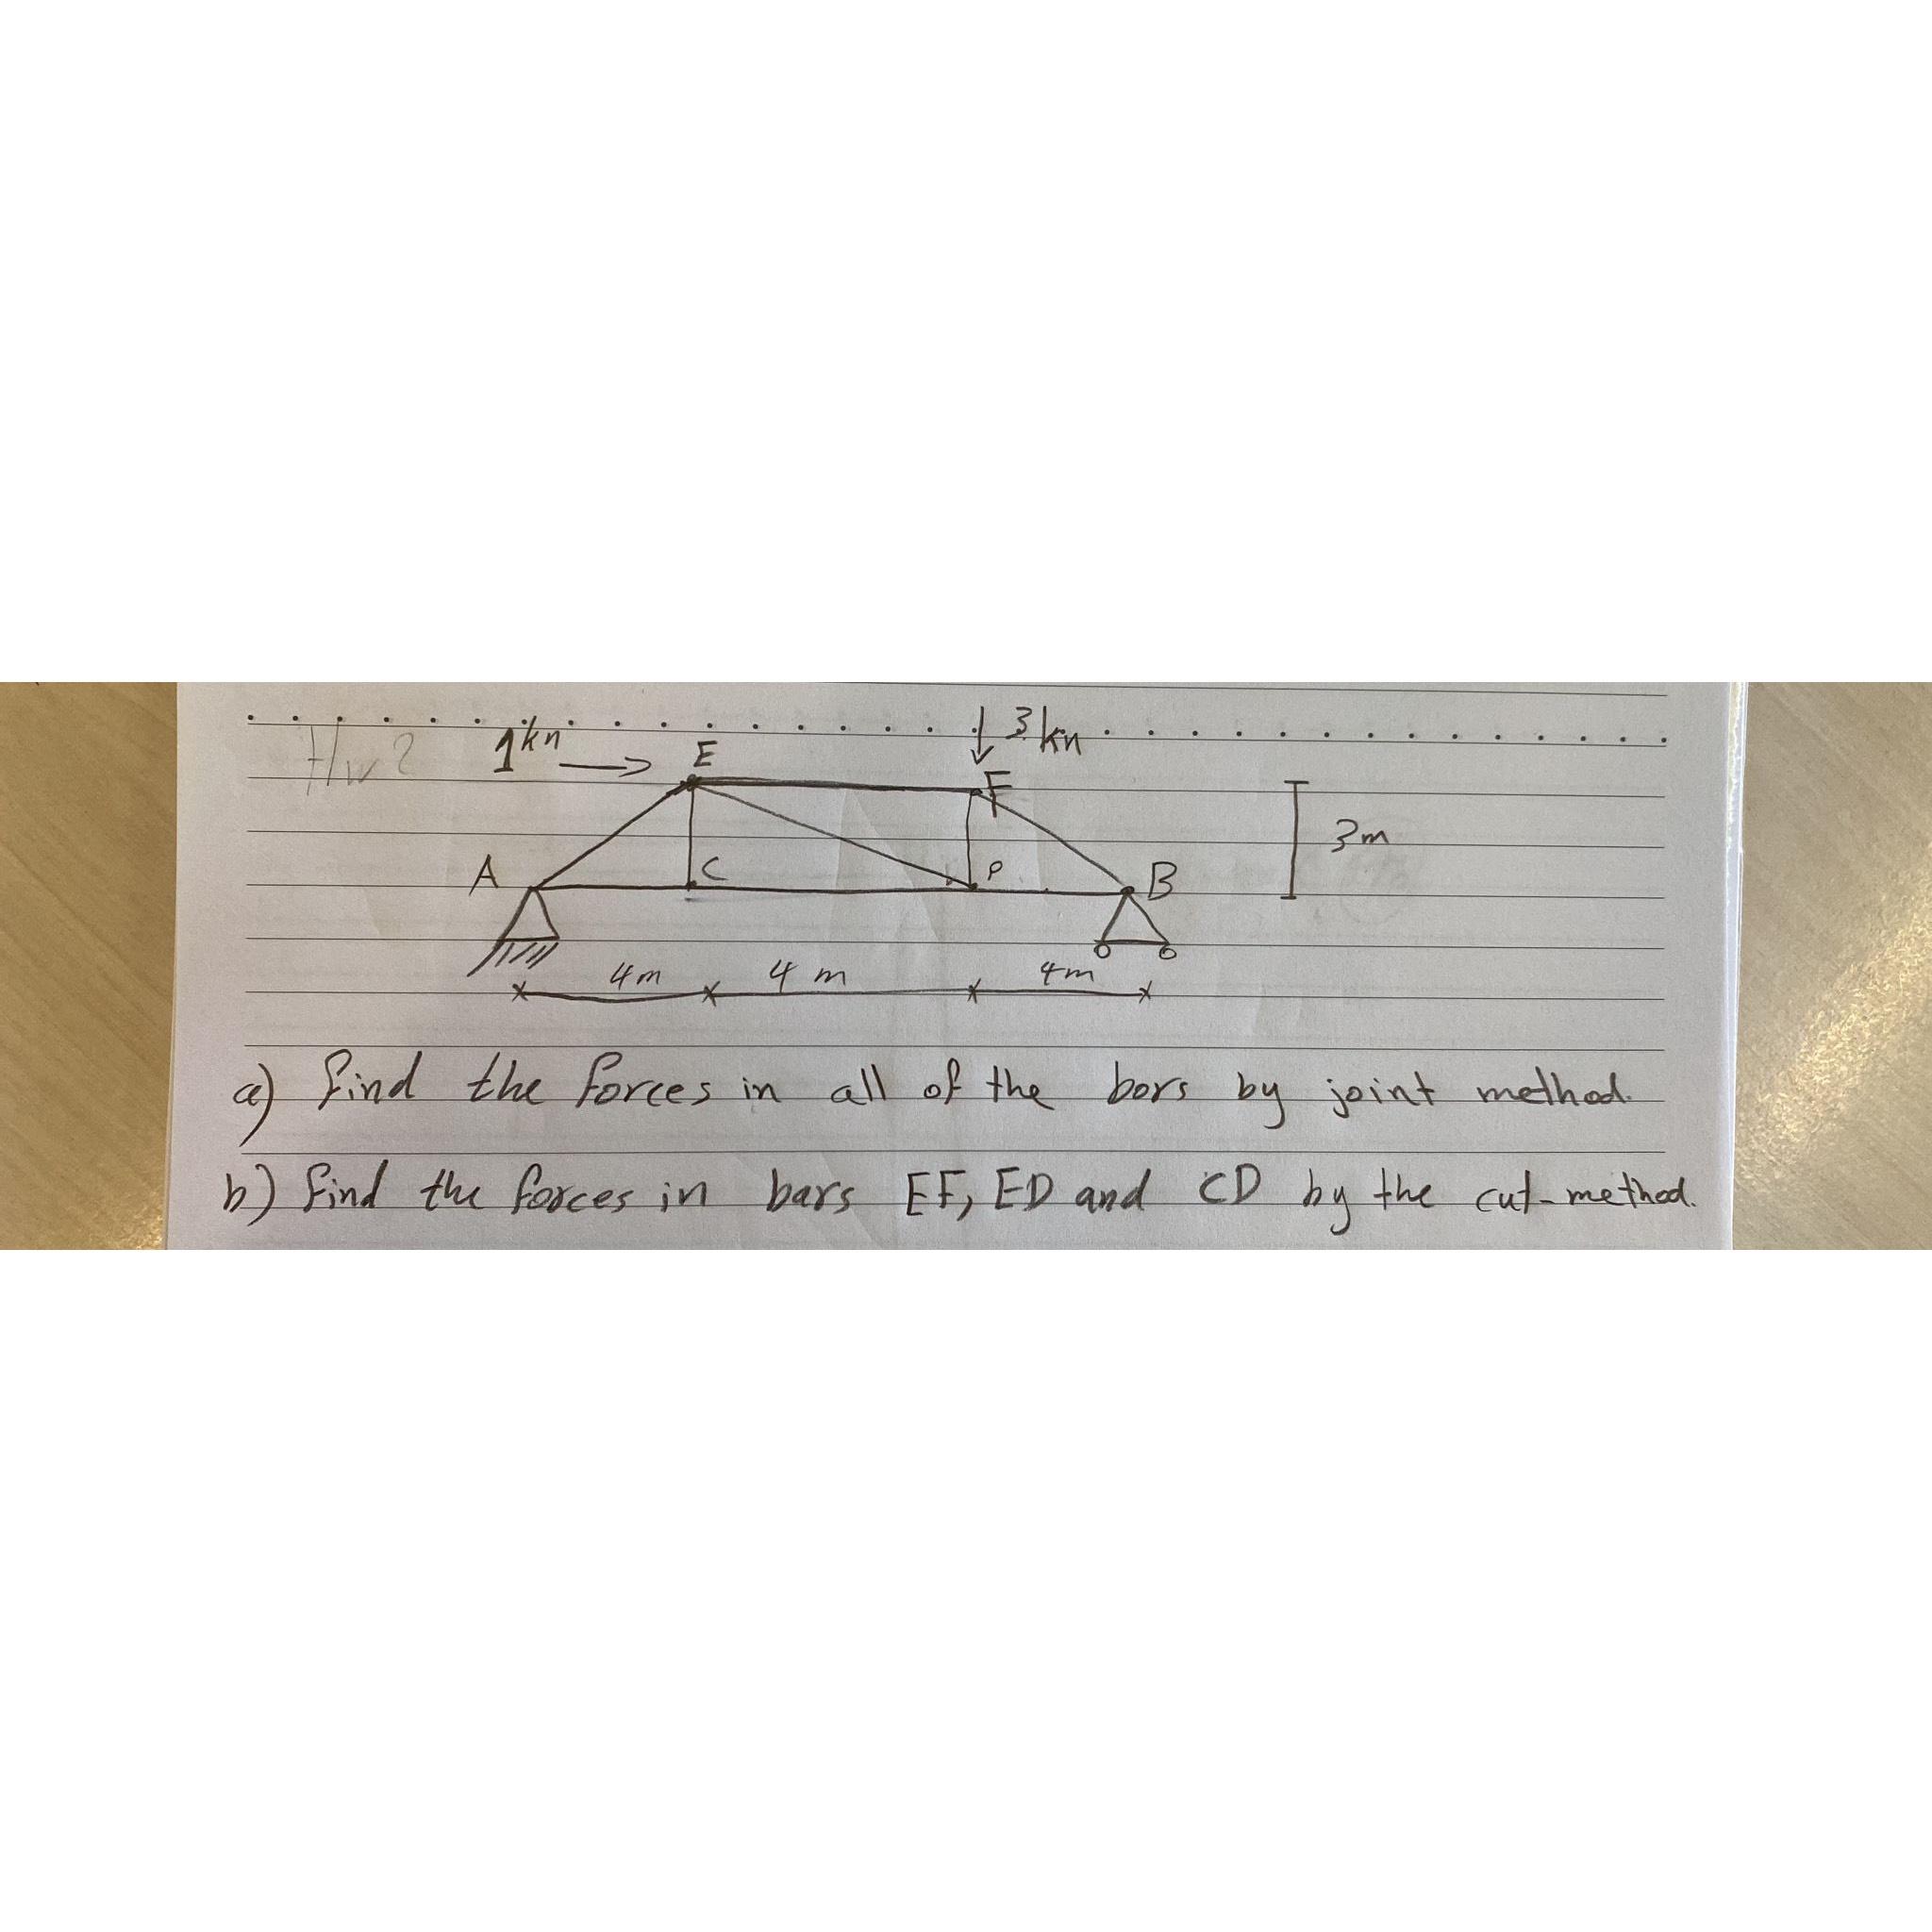 Hw ?
1 kn
3 kn
E
F
3m
A
C
P
B
4m
4 m
4m
a) find the forces in all of the bors by joint method.
b) find the forces in bars EF, ED and CD by the cut-method.